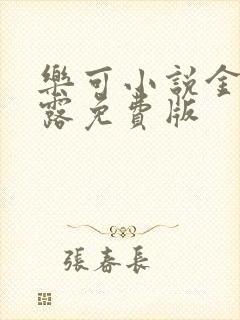 樂可小說金
露免費版
張春長